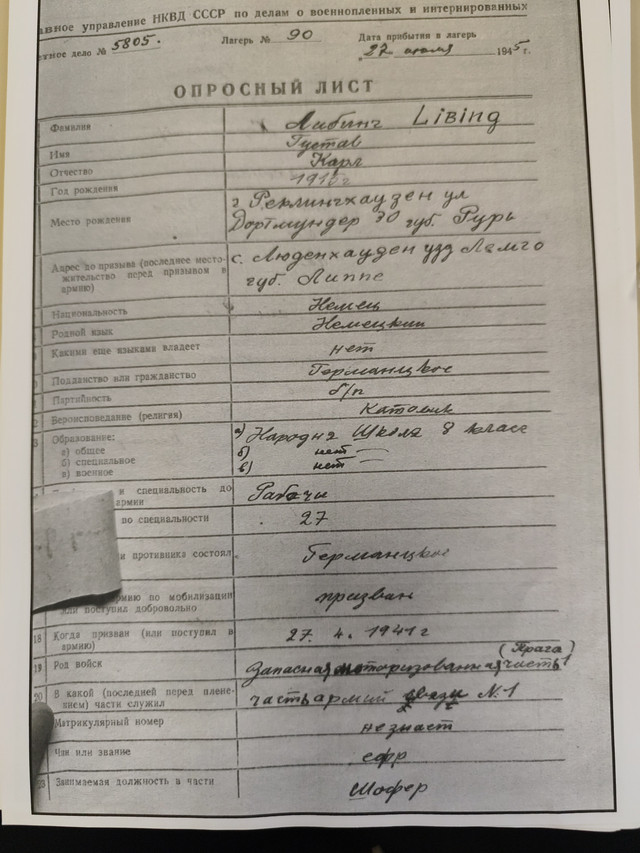 управление НКВД СССР по делам о военнопленных и интернированных
дело № 5805. Лагерь № 90 Дата прибытия в лагерь
27 1945 г.
ОПРОСНЫЙ ЛИСТ
Фамилия Либинг LiBing
Имя Густав
Отчество Карл
Год рождения 1910 г
Место рождения г Реклингхаузен ул
Дортмундер 30 губ. Рурь
Адрес до призыва (последнее место- с. Люденхауден узд Лемго
жительство перед призывом в губ. Липпе
армию)
Национальность Немец
Родной язык Немецкий
Какими еще языками владеет нет
Подданство или гражданство Германцкое
Партийность б/п
Вероисповедание (религия) Католик
Образование: а) Народня Школа 8 класс
а) общее б) нет
б) специальное в) нет
в) военное
и специальность до Рабочи
армии
по специальности 27
противника состоял Германцкое
армию по мобилизации призван
или поступил добровольно
18 Когда призван (или поступил в 27. 4. 1941 г
армию)
(Прага)
19 Род войск Запасная моторизованная часть
20 В какой (последней перед плене- часть армий связи №1
нием) части служил
Матрикулярный номер не знает
Чин или звание ефр
Занимаемая должность в части Шофер